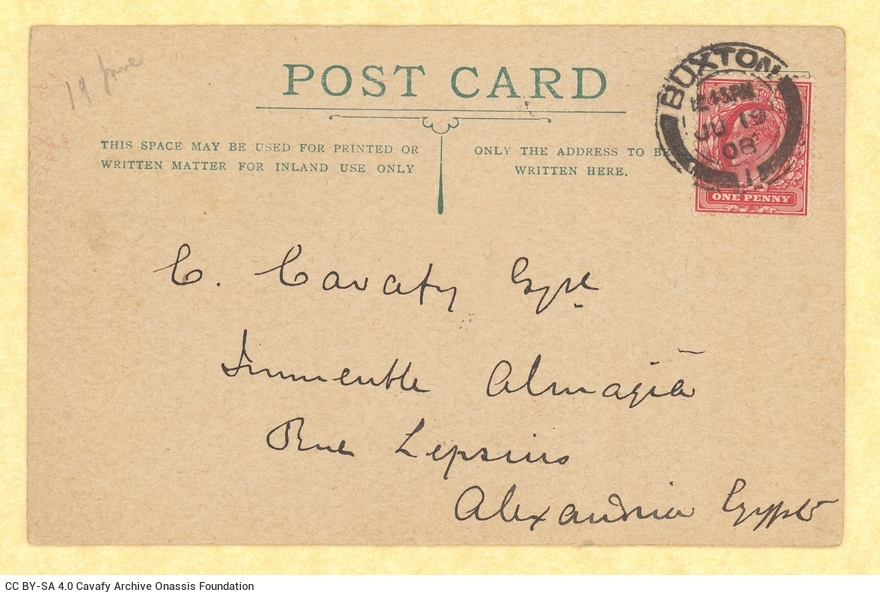 19 June
POST CARD
THIS SPACE MAY BE USED FOR PRINTED OR
WRITTEN MATTER FOR INLAND USE ONLY
ONLY THE ADDRESS TO BE
WRITTEN HERE.
BUXTON
12.45PM
JU 19
08
ONE PENNY
C. Cavafy Esqre
Immeuble Almagià
Rue Lepsius
Alexandria Egypt
CC BY-SA 4.0 Cavafy Archive Onassis Foundation